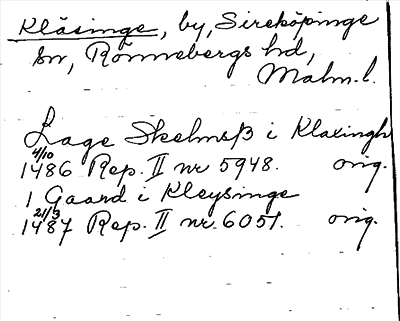 Kläsinge, by, Sireköpinge
sn, Rönnebergs hd,
Malm.l.
Lage Skelmsß i Klaxingh
4/10
1486 Rep. II nr 5948. orig.
1 Gaard i Kleysinge
21/3
1487 Rep. II nr. 6051. orig.